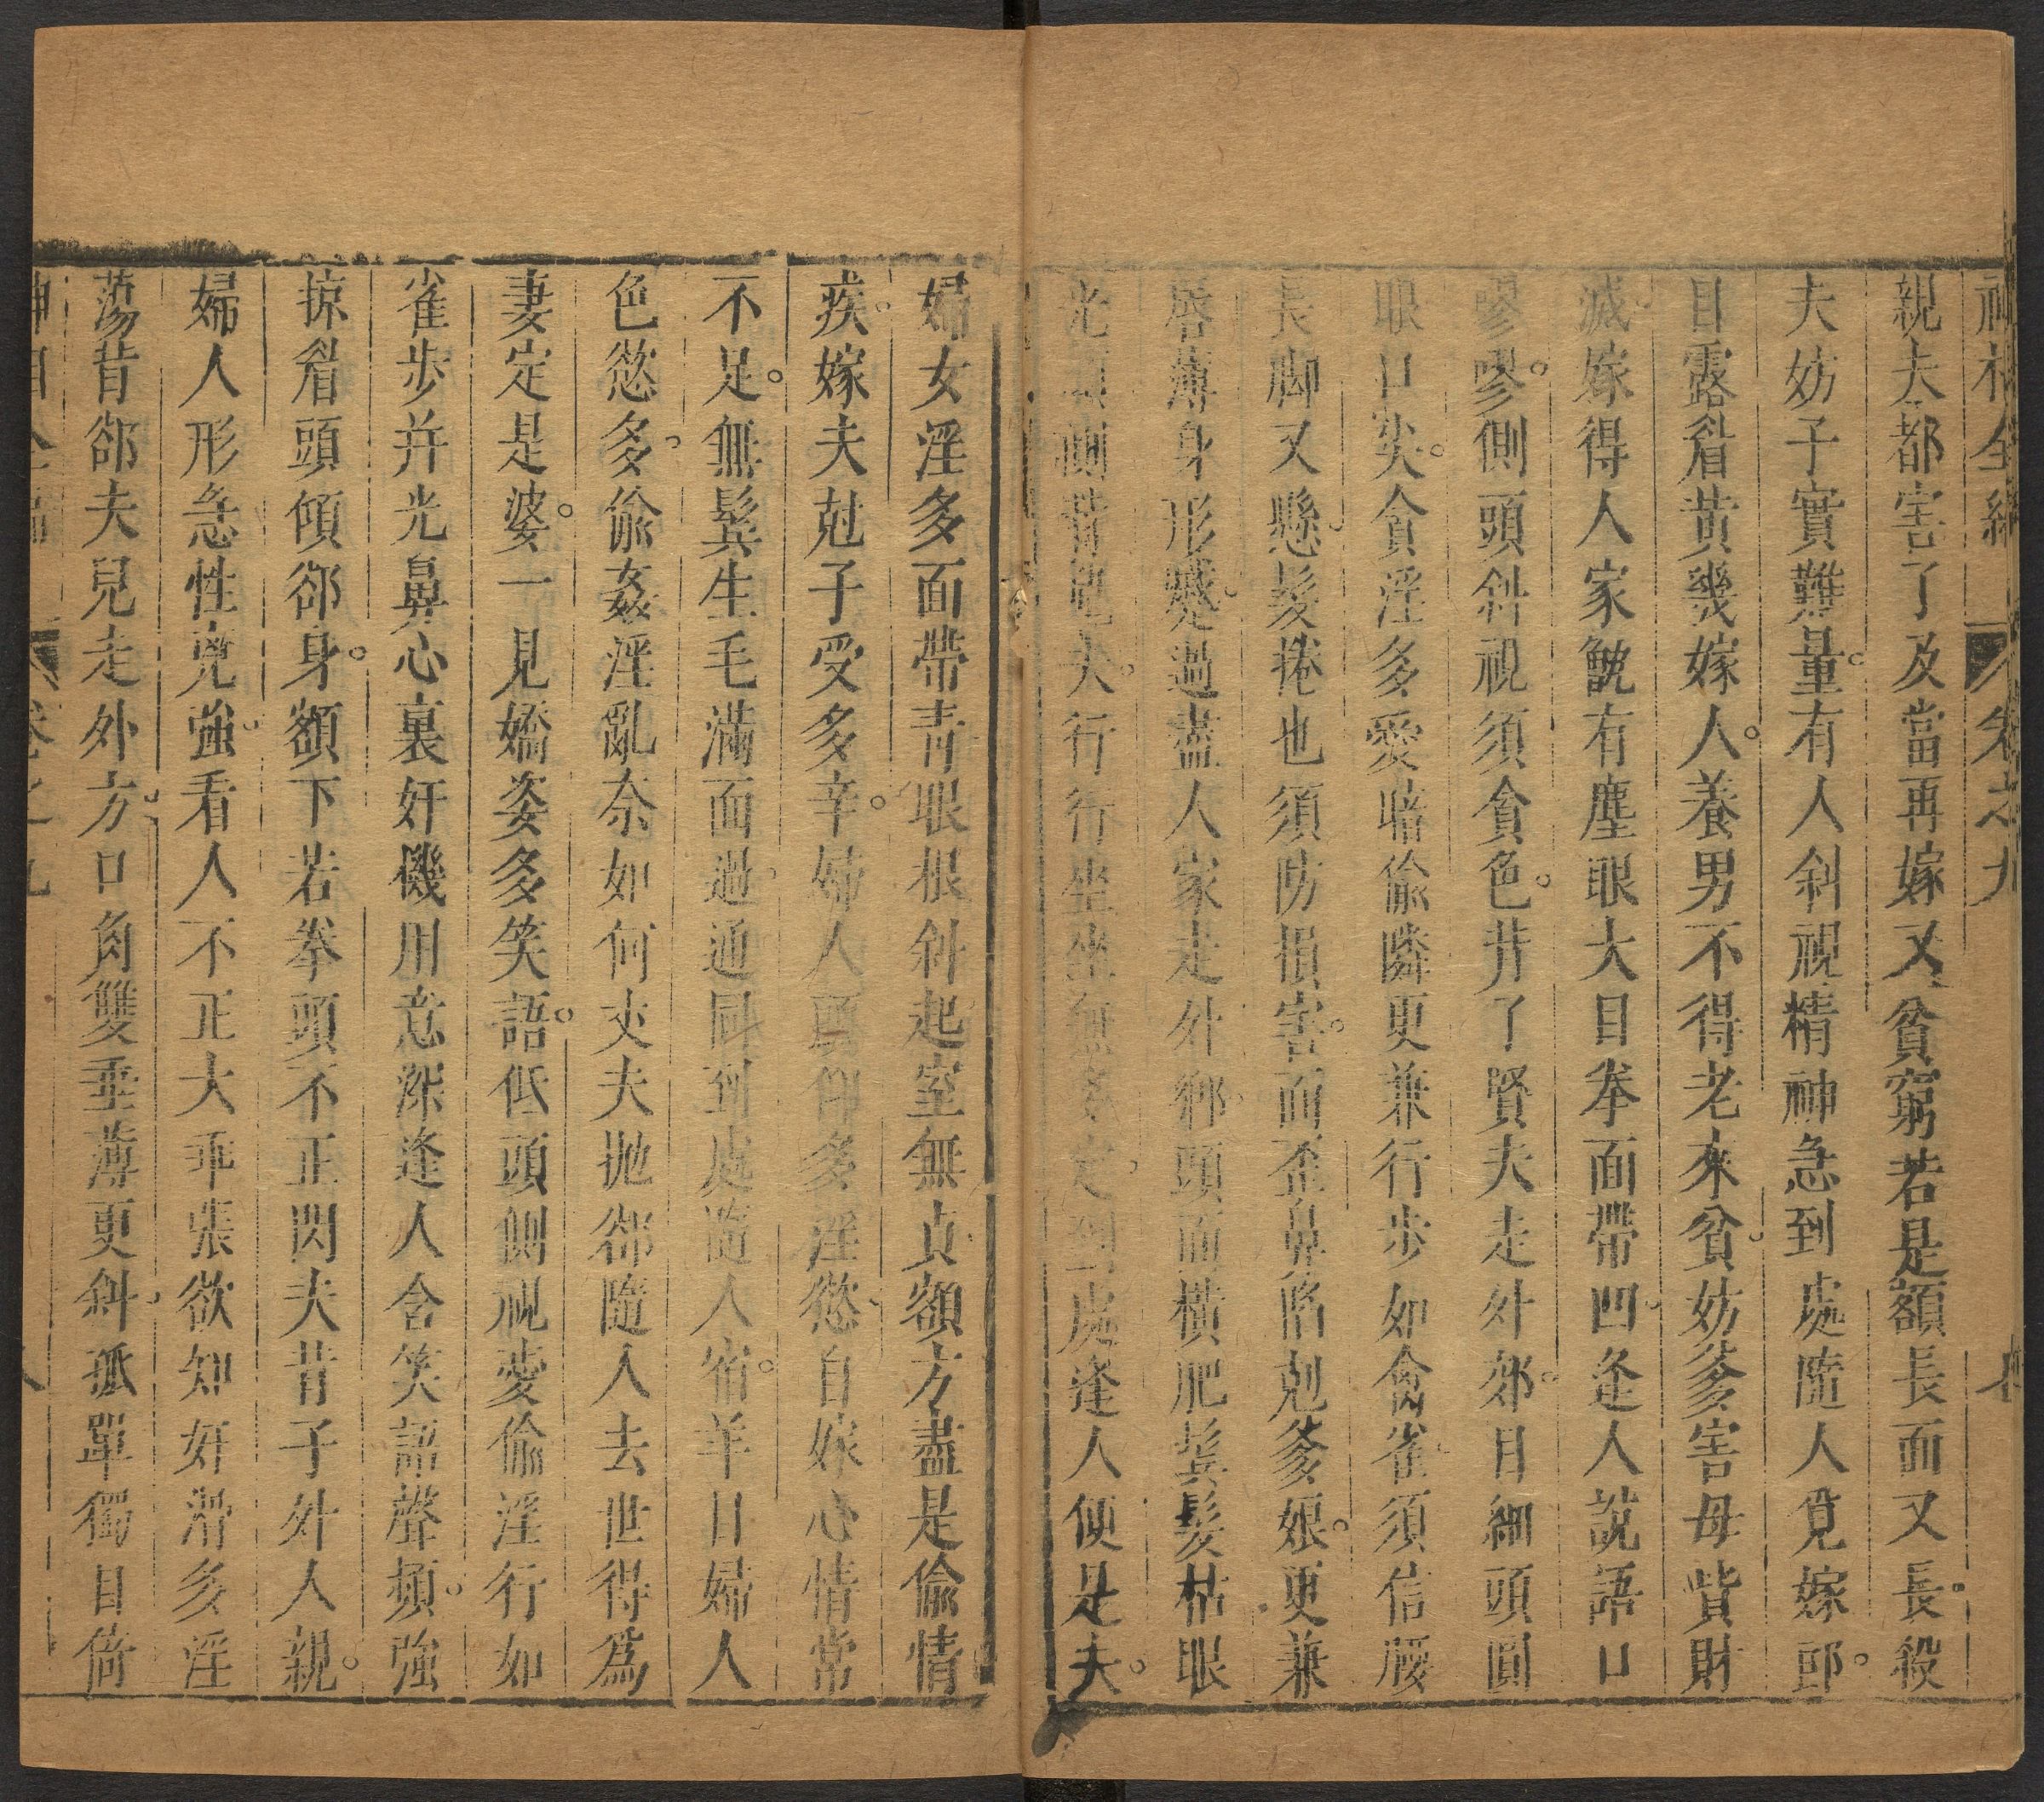 神相全編 卷之九
親夫都害了及當再嫁又貧窮若是額長面又長。殺
夫妨子實難量。有人斜視精神急到處隨人覓嫁郎。
目露眉黃幾嫁人。養男不得老來貧妨爹害母貲財
滅。嫁得人家甑有塵眼大目拳面帶凹逢人說語口
嘐嘐。側頭斜視須貪色。背了賢夫走外郊。目細頭圓
眼口尖。貪淫多愛暗偷隣更兼行步如禽雀須信腰
長脚又懸髮捲也須防損害。面歪鼻陷剋爹娘。更兼
唇薄身形蹙過盡人家走外鄉。頭面橫肥鬂髮枯眼
光 側背 大。行行坐坐無 定。到處逢人便是夫。
婦女淫多面帶青眼根斜起室無貞額方盡是偷情
疾。嫁夫尅子受多辛。婦人頭仰多淫慾自嫁心情常
不足。無鬂生毛滿面過通同到處隨人宿。羊目婦人
色慾多。偷姦淫亂奈如何丈夫拋郤隨人去世得爲
妻定是婆。一見嬌姿多笑語。低頭側視愛偷淫行如
雀步并光鼻心裏奸機用意深逢人含笑語聲頻。強
掠眉頭傾郤身。額下若拳頭不正閃夫背子外人親。
婦人形急性兇強。看人不正大乖張欲知奸滑多淫
蕩背郤夫兒走外方。口角雙垂薄更斜。孤單獨目倚